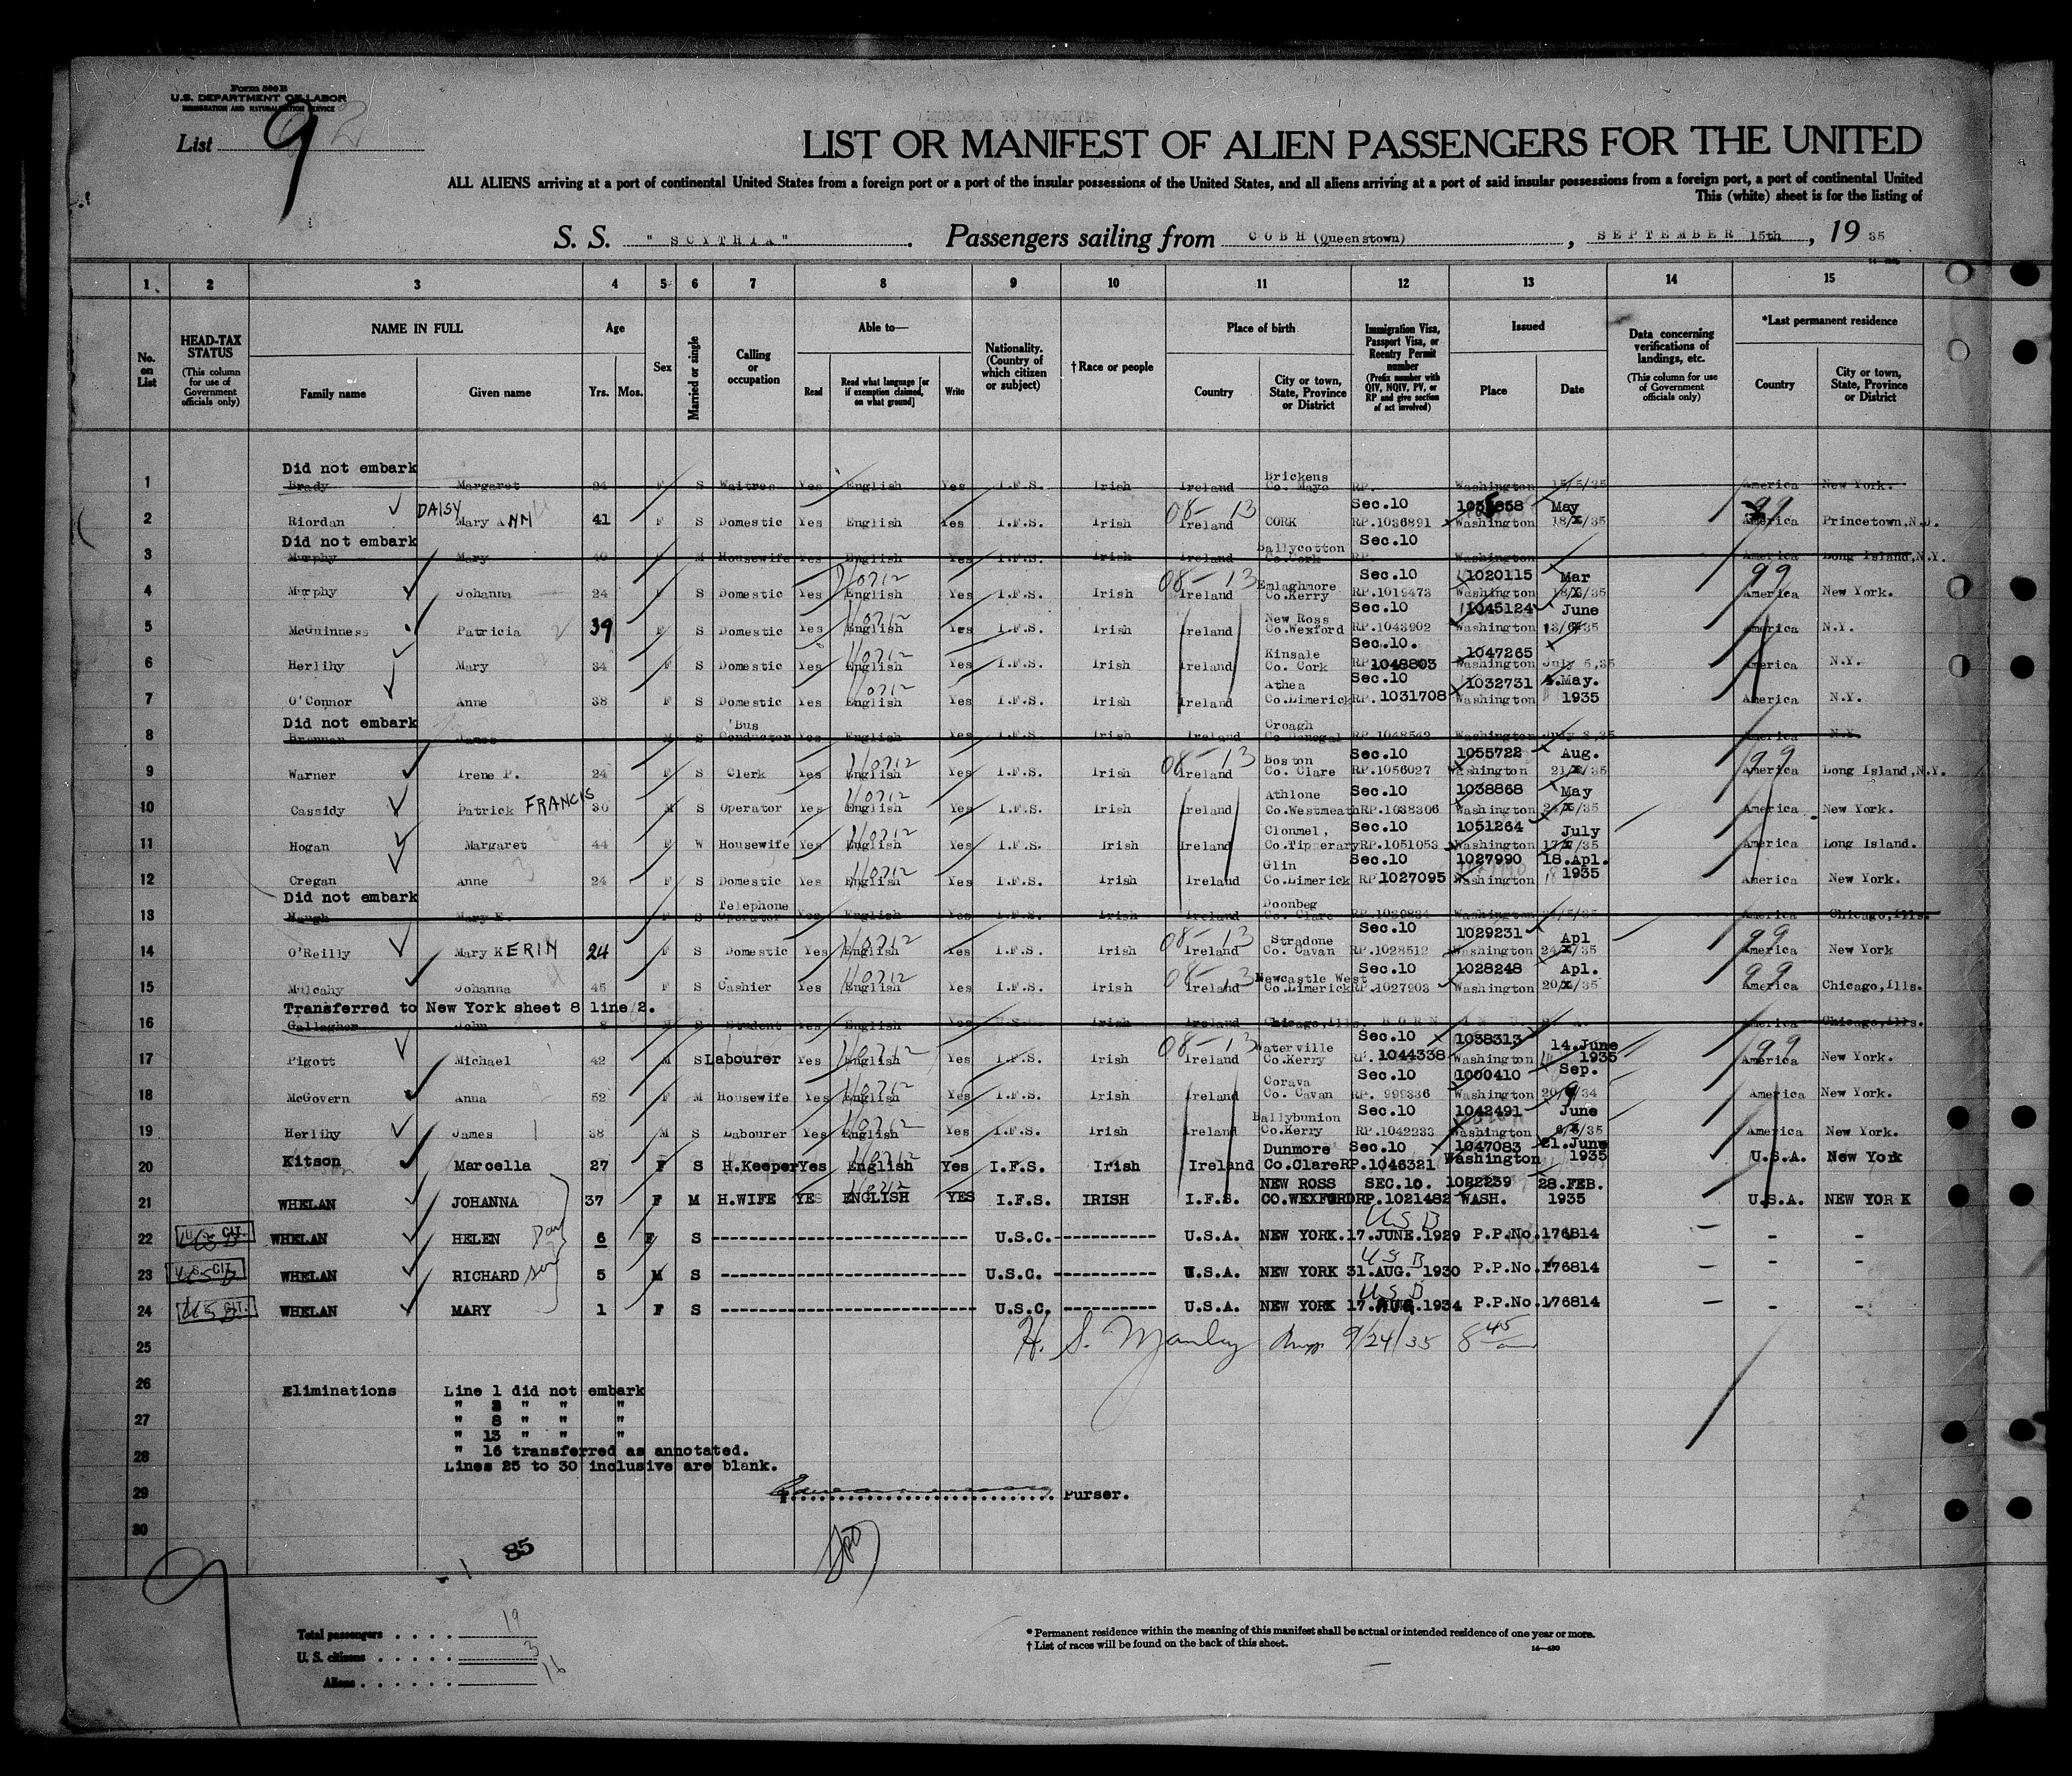 Form 500 B
U.S. DEPARTMENT OF LABOR
IMMIGRATION AND NATURALIZATION SERVICE
List 9 2
LIST OR MANIFEST OF ALIEN PASSENGERS FOR THE UNITED
ALL ALIENS arriving at a port of continental United States from a foreign port or a port of the insular possessions of the United States, and all aliens arriving at a port of said insular possessions from a foreign port, a port of continental United
This (white) sheet is for the listing of
S. S. "SCYTHIA". Passengers sailing from COBH (Queenstown), SEPTEMBER 15th, 19 35
1 2 3 4 5 6 7 8 9 10 11 12 13 14 15
No. on List
HEAD-TAX STATUS (This column for use of Government officials only)
NAME IN FULL Family name Given name
Age Yrs. Mos.
Sex
Married or single
Calling or occupation
Able to— Read Read what language [or if exemption claimed, on what ground] Write
Nationality. (Country of which citizen or subject)
†Race or people
Place of birth Country City or town, State, Province or District
Immigration Visa, Passport Visa, or Reentry Permit number (Prefix number with QIV, NQIV, PV, or RP and give section of act involved)
Issued Place Date
Data concerning verifications of landings, etc. (This column for use of Government officials only)
*Last permanent residence Country City or town, State, Province or District
Did not embark
1 Brady Margaret 24 F S Waitres Yes English Yes I.F.S. Irish Ireland Brickens Co. Mayo RP. Washington 15/5/35 America New York.
2 Riordan DAISY Mary ANN 41 F S Domestic Yes English Yes I.F.S. Irish 08-13 Ireland CORK Sec.10 RP.1036891 Washington May 18/ /35 99 America Princetown,N.J.
Did not embark
3 Murphy Mary 40 F M Housewife Yes English Yes I.F.S. Irish Ireland Ballycotton Co.Cork Sec.10 RP Washington America Long Island,N.Y.
4 Murphy Johanna 24 F S Domestic Yes English Yes I.F.S. Irish 08-13 Ireland Emlaghmore Co.Kerry Sec.10 RP.1019473 1020115 Washington Mar 18/ /35 99 America New York.
5 McGuinness Patricia 39 F S Domestic Yes English Yes I.F.S. Irish Ireland New Ross Co.Wexford Sec.10 RP.1043902 1045124 Washington June 13/6/35 America N.Y.
6 Herlihy Mary 34 F S Domestic Yes English Yes I.F.S. Irish Ireland Kinsale Co. Cork Sec.10. RP 1048803 1047265 Washington July 5,35 America N.Y.
7 O'Connor Anne 38 F S Domestic Yes English Yes I.F.S. Irish Ireland Athea Co.Limerick Sec.10 RP. 1031708 1032731 Washington 4.May. 1935 America N.Y.
Did not embark
8 Brennan James M S 'Bus Conductor Yes English Yes I.F.S. Irish Ireland Croagh Co Donegal RP 1048542 Washington July 8 35 America N.Y.
9 Warner Irene P. 24 F S Clerk Yes English Yes I.F.S. Irish 08-13 Ireland Boston Co. Clare Sec.10 RP.1056027 1055722 Washington Aug. 21/ /35 99 America Long Island,N.Y.
10 Cassidy Patrick FRANCIS 30 M S Operator Yes English Yes I.F.S. Irish Ireland Athlone Co.Westmeath Sec.10 RP.1038306 1038868 Washington May 24/5/35 America New York.
11 Hogan Margaret 44 F W Housewife Yes English Yes I.F.S. Irish Ireland Clonmel, Co.Tipperary Sec.10 RP.1051053 1051264 Washington July 17/ /35 America Long Island.
12 Cregan Anne 24 F S Domestic Yes English Yes I.F.S. Irish Ireland Glin Co.Limerick Sec.10 RP.1027095 1027990 Washington 18.Apl. 1935 America New York.
Did not embark
13 Haugh Mary E. F S Telephone Operator Yes English Yes I.F.S. Irish Ireland Doonbeg Co. Clare RP.1039834 Washington /5/35 America Chicago,Ills.
14 O'Reilly Mary KERIN 24 F S Domestic Yes English Yes I.F.S. Irish 08-13 Ireland Stradone Co. Cavan Sec.10 RP.1028512 1029231 Washington Apl 24/ /35 99 America New York
15 Mulcahy Johanna 45 F S Cashier Yes English Yes I.F.S. Irish 08-13 Ireland Newcastle West Co.Limerick Sec.10 RP.1027903 1028248 Washington Apl. 20/ /35 99 America Chicago,Ills.
Transferred to New York sheet 8 line 2.
16 Gallagher John 8 M S Student Yes English Yes U.S.C. Irish Ireland Chicago,Ills. BORN IN U. S. A. America Chicago,Ills.
17 Pigott Michael 42 M S Labourer Yes English Yes I.F.S. Irish 08-13 Ireland Waterville Co.Kerry Sec.10 RP. 1044338 1038313 Washington 14.June 1935 99 America New York.
18 McGovern Anna 52 F M Housewife Yes English Yes I.F.S. Irish Ireland Corava Co. Cavan Sec.10 RP. 999336 1000410 Washington Sep. 20/9/34 America New York.
19 Herlihy James 38 M S Labourer Yes English Yes I.F.S. Irish Ireland Ballybunion Co.Kerry Sec.10 RP.1042233 1042491 Washington June 6/ /35 America New York.
20 Kitson Marcella 27 F S H.Keeper Yes English Yes I.F.S. Irish Ireland Dunmore Co.Clare Sec.10 RP.1046321 1047083 Washington 21.June 1935 U.S.A. New York
21 WHELAN JOHANNA 37 F M H.WIFE YES ENGLISH YES I.F.S. IRISH I.F.S. NEW ROSS CO.WEXFORD SEC.10. RP.1021482 1022239 WASH. 28.FEB. 1935 U.S.A. NEW YORK
22 U.S. CIT. WHELAN HELEN 6 F S U.S.C. U.S.A. NEW YORK.17.JUNE.1929 USB P.P.No.176814 - -
23 U.S. CIT. WHELAN RICHARD son 5 M S U.S.C. U.S.A. NEW YORK 31.AUG. 1930 USB P.P.No.176814 - -
24 CIT. WHELAN MARY 1 F S U.S.C. U.S.A. NEW YORK 17.AUG.1934 USB P.P.No.176814 - -
25 H. S. Manley Insp 9/24/35 8 45
26 Eliminations Line 1 did not embark
" 3 " " "
27 " 8 " " "
" 13 " " "
28 " 16 transferred as annotated.
Lines 25 to 30 inclusive are blank.
29 Purser.
30
85
9
Total passengers 19
U. S. citizens 3
Aliens 16
* Permanent residence within the meaning of this manifest shall be actual or intended residence of one year or more.
† List of races will be found on the back of this sheet.
14—430